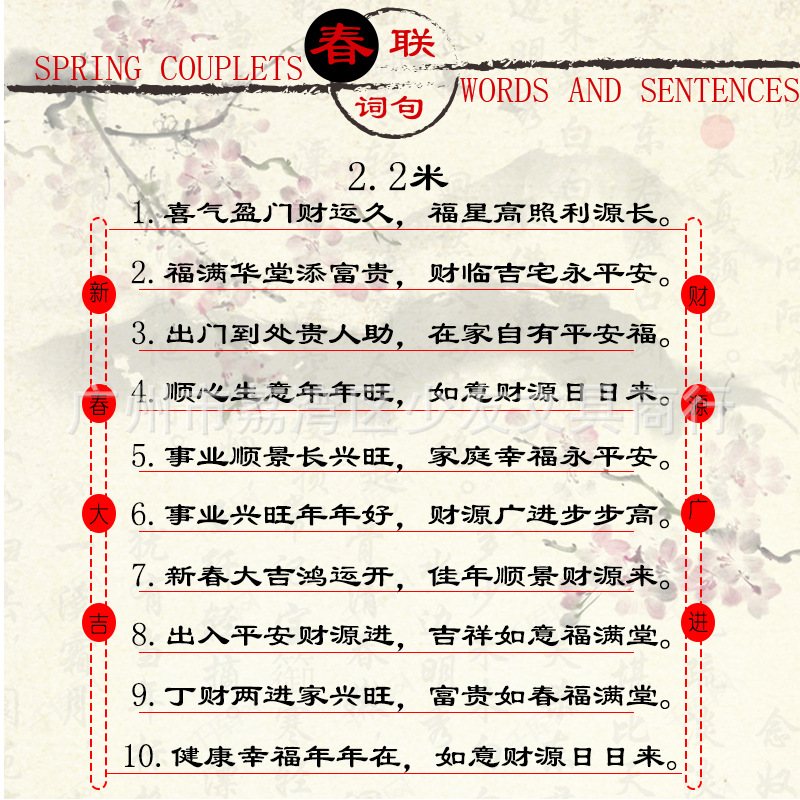 春联
SPRING COUPLETS
词句
WORDS AND SENTENCES
2.2米
1.喜气盈门财运久，福星高照利源长。
2.福满华堂添富贵，财临吉宅永平安。
3.出门到处贵人助，在家自有平安福。
4.顺心生意年年旺，如意财源日日来。
5.事业顺景长兴旺，家庭幸福永平安。
6.事业兴旺年年好，财源广进步步高。
7.新春大吉鸿运开，佳年顺景财源来。
8.出入平安财源进，吉祥如意福满堂。
9.丁财两进家兴旺，富贵如春福满堂。
10.健康幸福年年在，如意财源日日来。
新春大吉
财源广进
广州市荔湾区少发文具商行